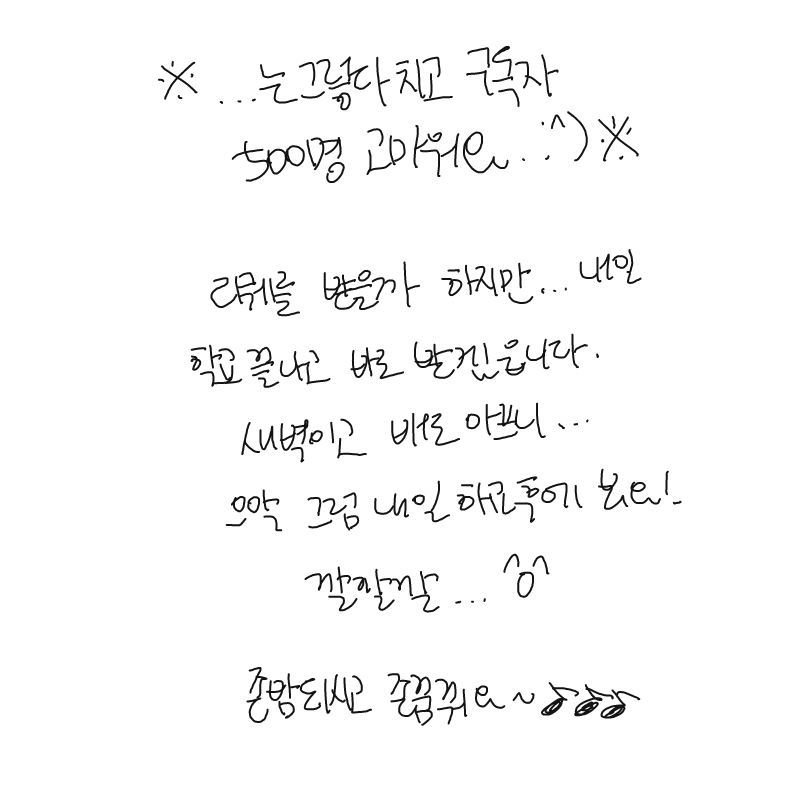 ※ ...는그렇다치고 구독자
500명 고마워요..:^)※
리퀘를 받을까 하지만... 내일
학교 끝나고 바로 받겠읍니다.
새벽이고 배도 아프니...
으악 그럼 내일 하교후에 봐요!
깔깔깔... ^O^
존밤되시고 존꿈꿔요~♪♪♪